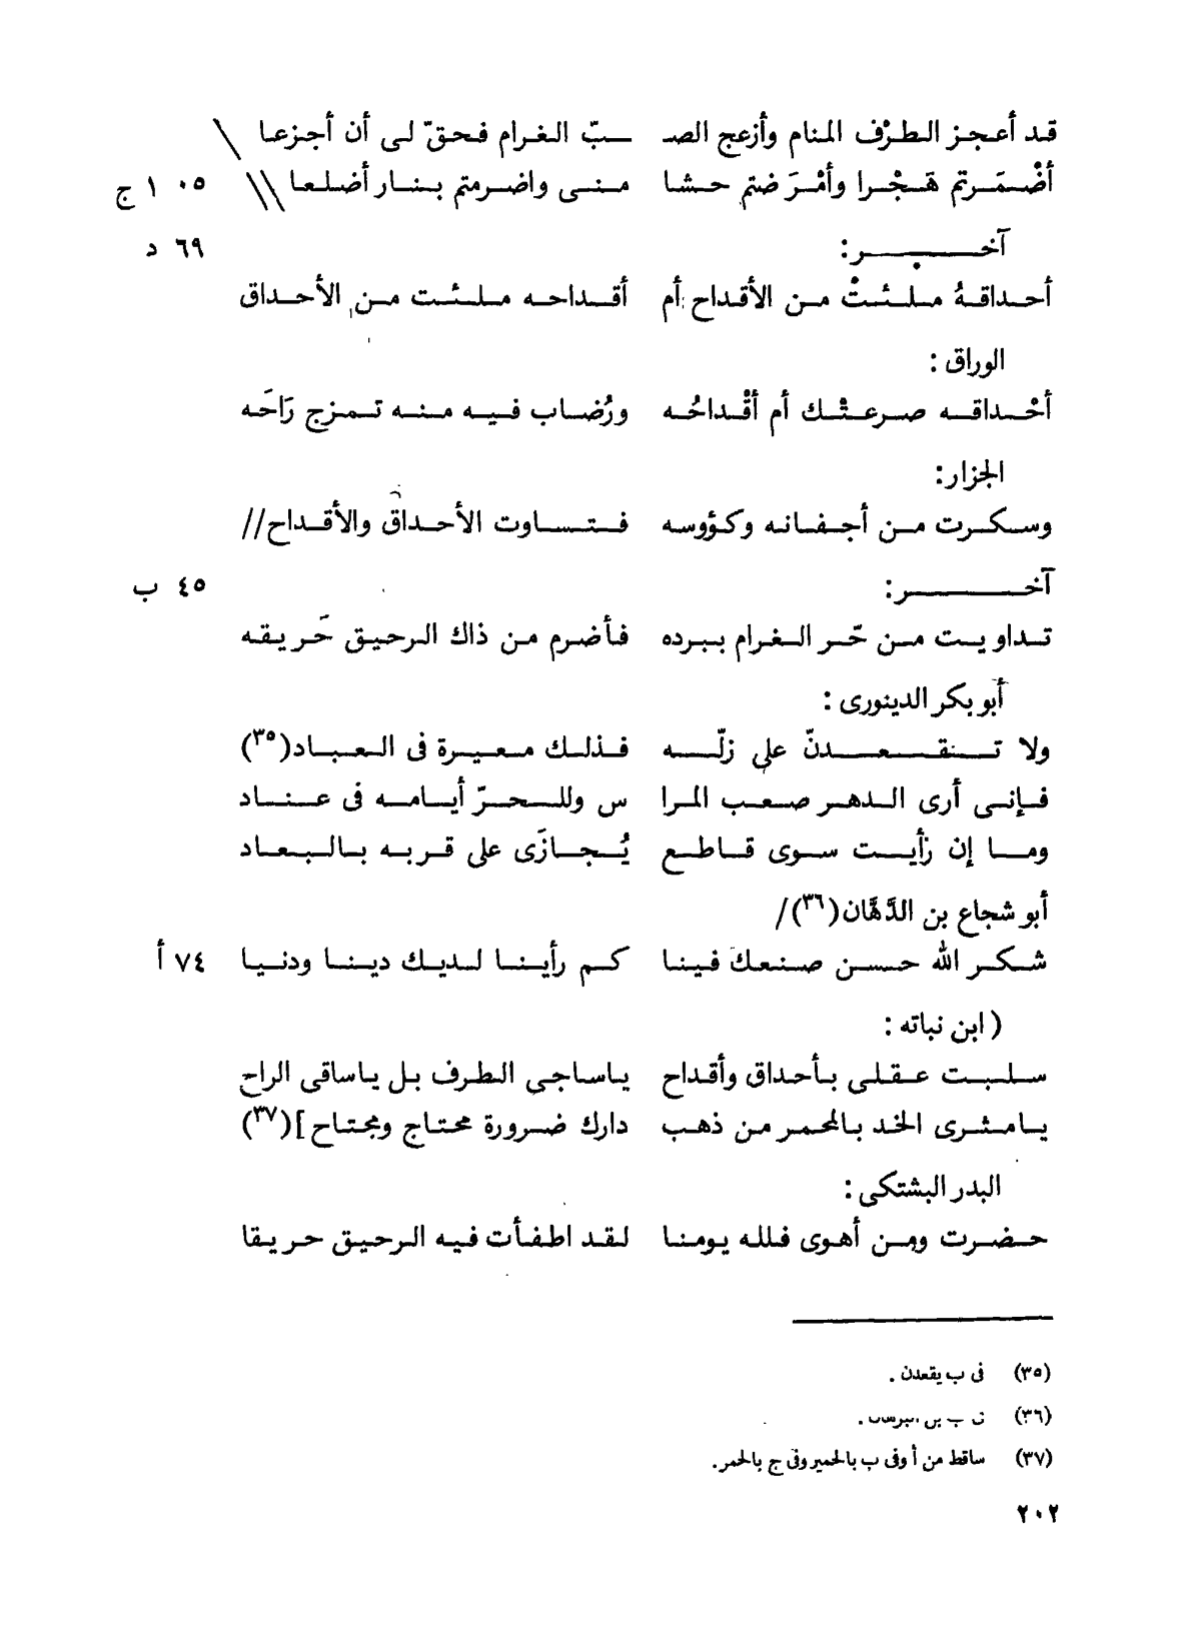 قد أعجز الطرْف المنام وأزعج الصـ ـبّ الغرام فحقّ لى أن أجزعا \
أضْمَرتم هَجْرا وأمْرَ ضتم حشا منى واضرمتم بنار أضلعا \\ ١٠٥ ج
آخر: ٦٩ د
أحداقهُ ملئتْ من الأقداح أم أقداحه ملئت من الأحداق
الوراق :
أحْداقه صرعتْك أم أقْداحُه ورُضاب فيه منه تمزج رَاحَه
الجزار:
وسكرت من أجفانه وكؤوسه فتساوت الأحداق والأقداح//
آخر: ٤٥ ب
تداويت من حّر الغرام ببرده فأضرم من ذاك الرحيق حَريقه
أبو بكر الدينورى :
ولا تنقعدنّ على زلّه فذلك معيرة فى العباد(٣٥)
فإنى أرى الدهر صعب المرا س وللحرّ أيامه فى عناد
وما إن رأيت سوى قاطع يُجازَى على قربه بالبعاد
أبو شجاع بن الدَّهَّان(٣٦)/
شكر الله حسن صنعك فينا كم رأينا لديك دينا ودنيا ٧٤ أ
( ابن نباته :
سلبت عقلى بأحداق وأقداح ياساجى الطرف بل ياساقى الراح
يامثرى الخد بالمحمر من ذهب دارك ضرورة محتاج ومجتاح](٣٧)
البدر البشتكى :
حضرت ومن أهوى فلله يومنا لقد اطفأت فيه الرحيق حريقا
(٣٥) فى ب يقعدن .
(٣٦)
(٣٧) ساقط من أ وفى ب بالخمير وفى ج بالخمر.
٢٠٢